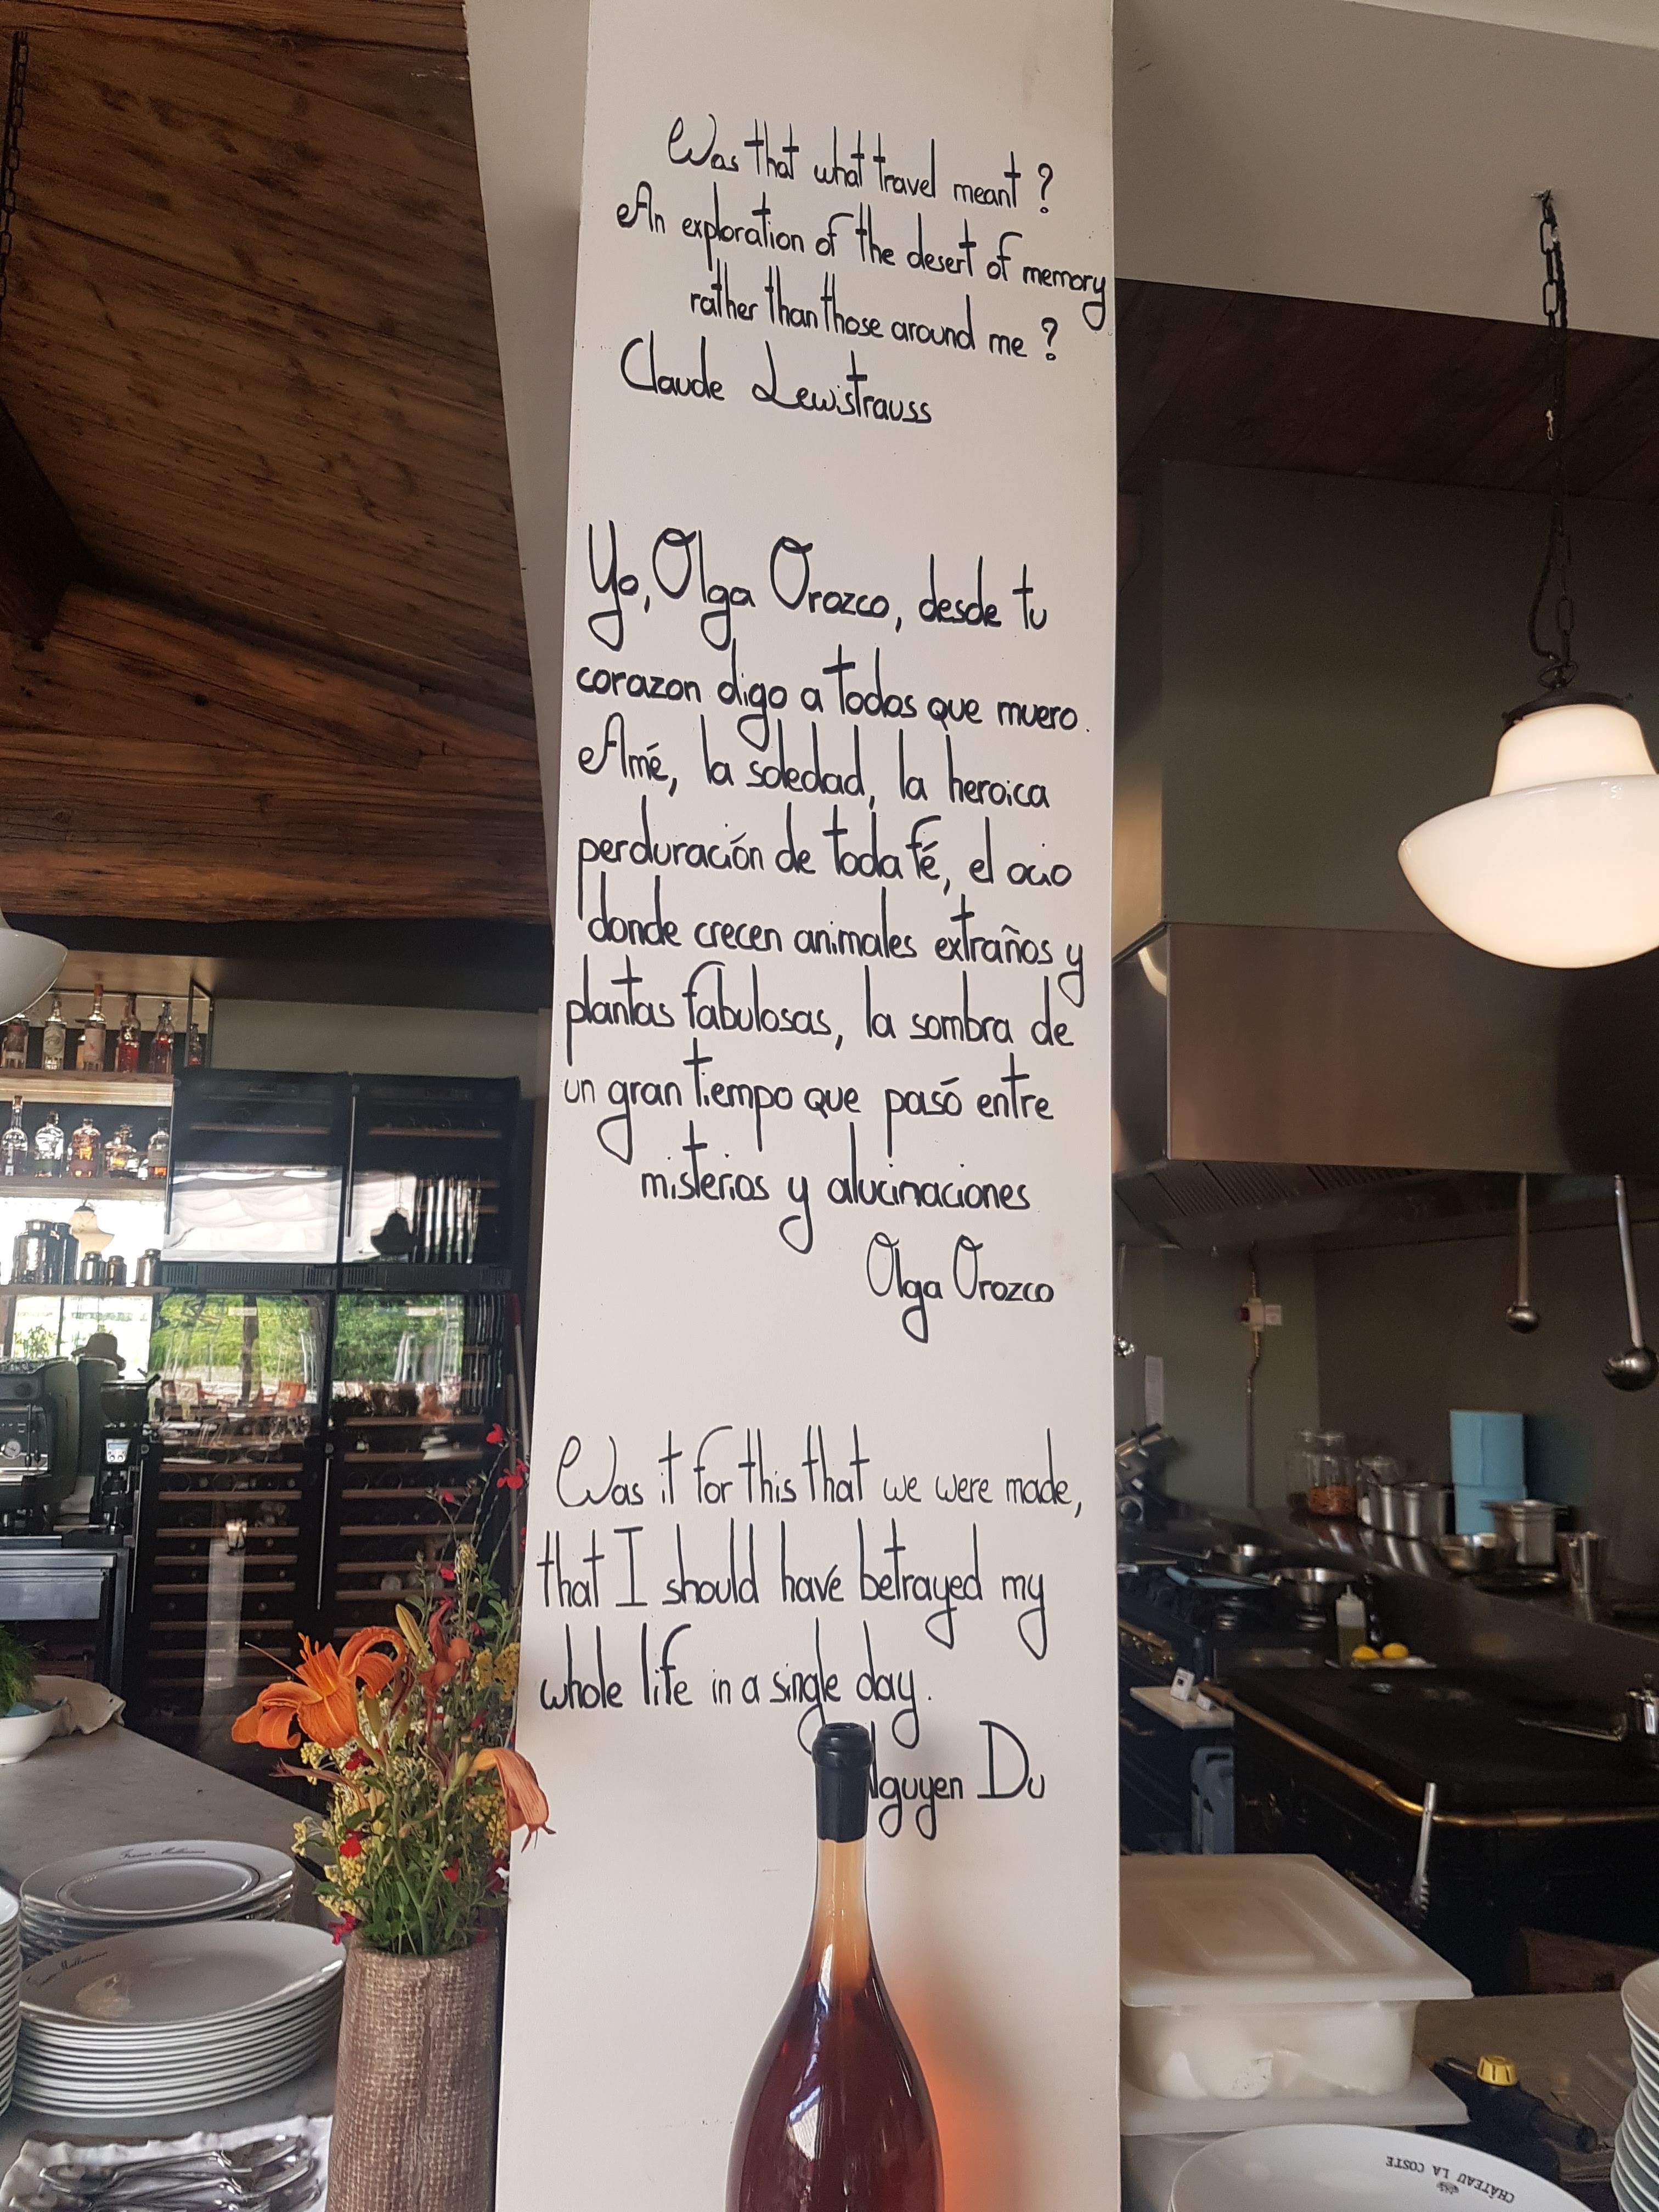 Was that what travel meant?
An exploration of the desert of memory
rather than those around me?
Claude Lewistrauss
Yo, Olga Orozco, desde tu
corazon digo a todos que muero.
Amé, la soledad, la heroica
perduración de toda fé, el ocio
donde crecen animales extraños y
plantas fabulosas, la sombra de
un gran tiempo que pasó entre
misterios y alucinaciones
Olga Orozco
Was it for this that we were made,
that I should have betrayed my
whole life in a single day.
Nguyen Du
CHÂTEAU LA COSTE